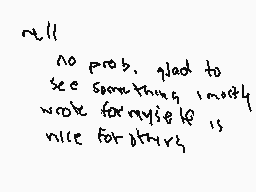 null
no prob. glad to
see something i mostly
wrote for myself is
nice for others